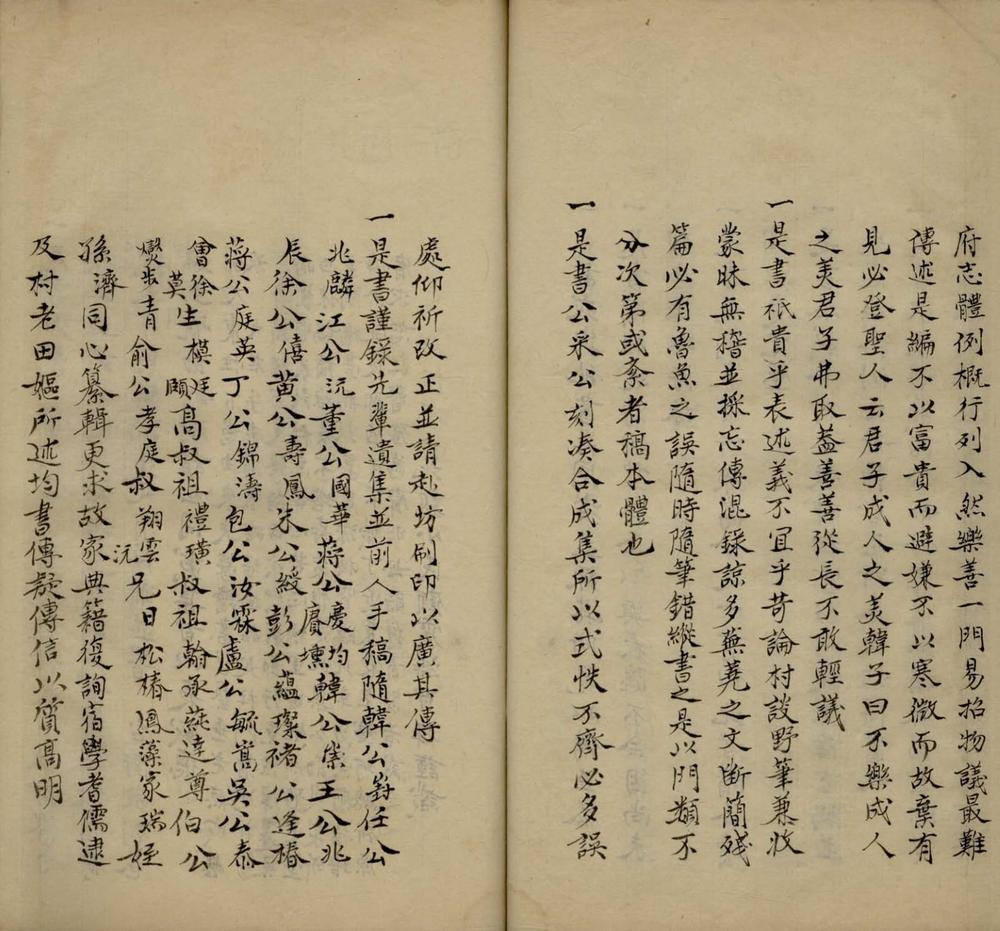 府志體例概行列入然樂善一門易招物議最難
傳述是編不以富貴而避嫌不以寒微而故棄有
見必登聖人云君子成人之美韓子曰不樂成人
之美君子弗取蓋善善從長不敢輕議
一是書祇貴乎表述義不宜乎苛論村談野筆兼收
蒙昧無稽並採忘傳混録諒多蕪蕘之文斷簡殘
篇必有魯魚之誤隨時隨筆錯縱書之是以門類不
分次第或紊者稿本體也
一是書公采公刻凑合成集所以式帙不齊必多誤
處仰祈改正並請赴坊刷印以廣其傳
一是書謹録先輩遺集並前人手稿隨韓公對任公
兆麟江公沅董公國華蔣公慶均賡壎韓公崇王公兆
辰徐公僖黃公壽鳳朱公綬彭公蘊璨褚公逢椿
蔣公庭英丁公錦濤包公汝霖盧公毓嵩吳公泰
曾徐莫生模廷願高叔祖禮璜叔祖翰承燕逵尊伯公
爕步青俞公孝庭叔翔雲沅兄日松椿鳳藻家瑞姪
孫濟同心纂輯更求故家典籍復詢宿學耆儒逮
及村老田嫗所述均書傳疑傳信以質高明